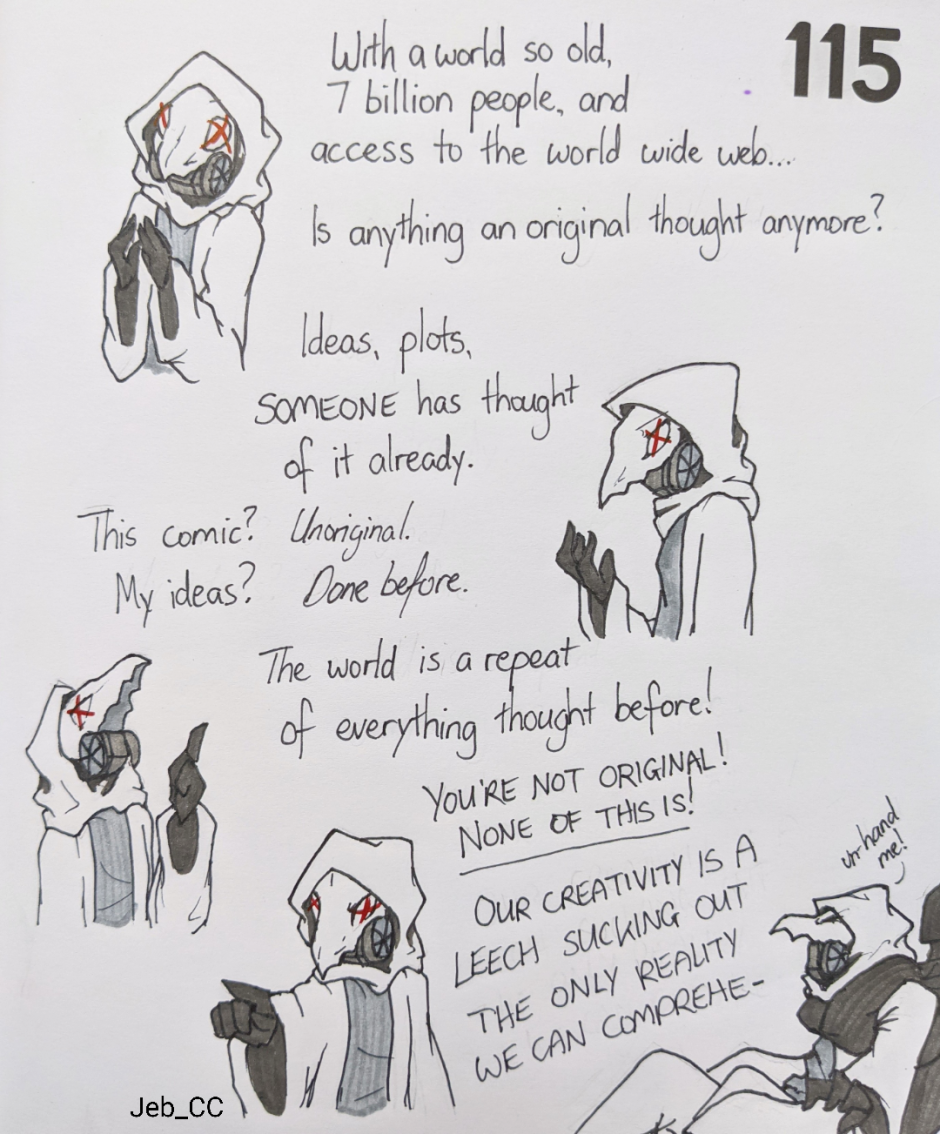 115
With a world so old,
7 billion people, and
access to the world wide web...
Is anything an original thought anymore?
Ideas, plots,
SOMEONE has thought
of it already.
This comic? Unoriginal.
My ideas? Done before.
The world is a repeat
of everything thought before!
YOU'RE NOT ORIGINAL!
NONE OF THIS IS!
OUR CREATIVITY IS A
LEECH SUCKING OUT
THE ONLY REALITY
WE CAN COMPREHE-
hand
me!
Jeb_CC